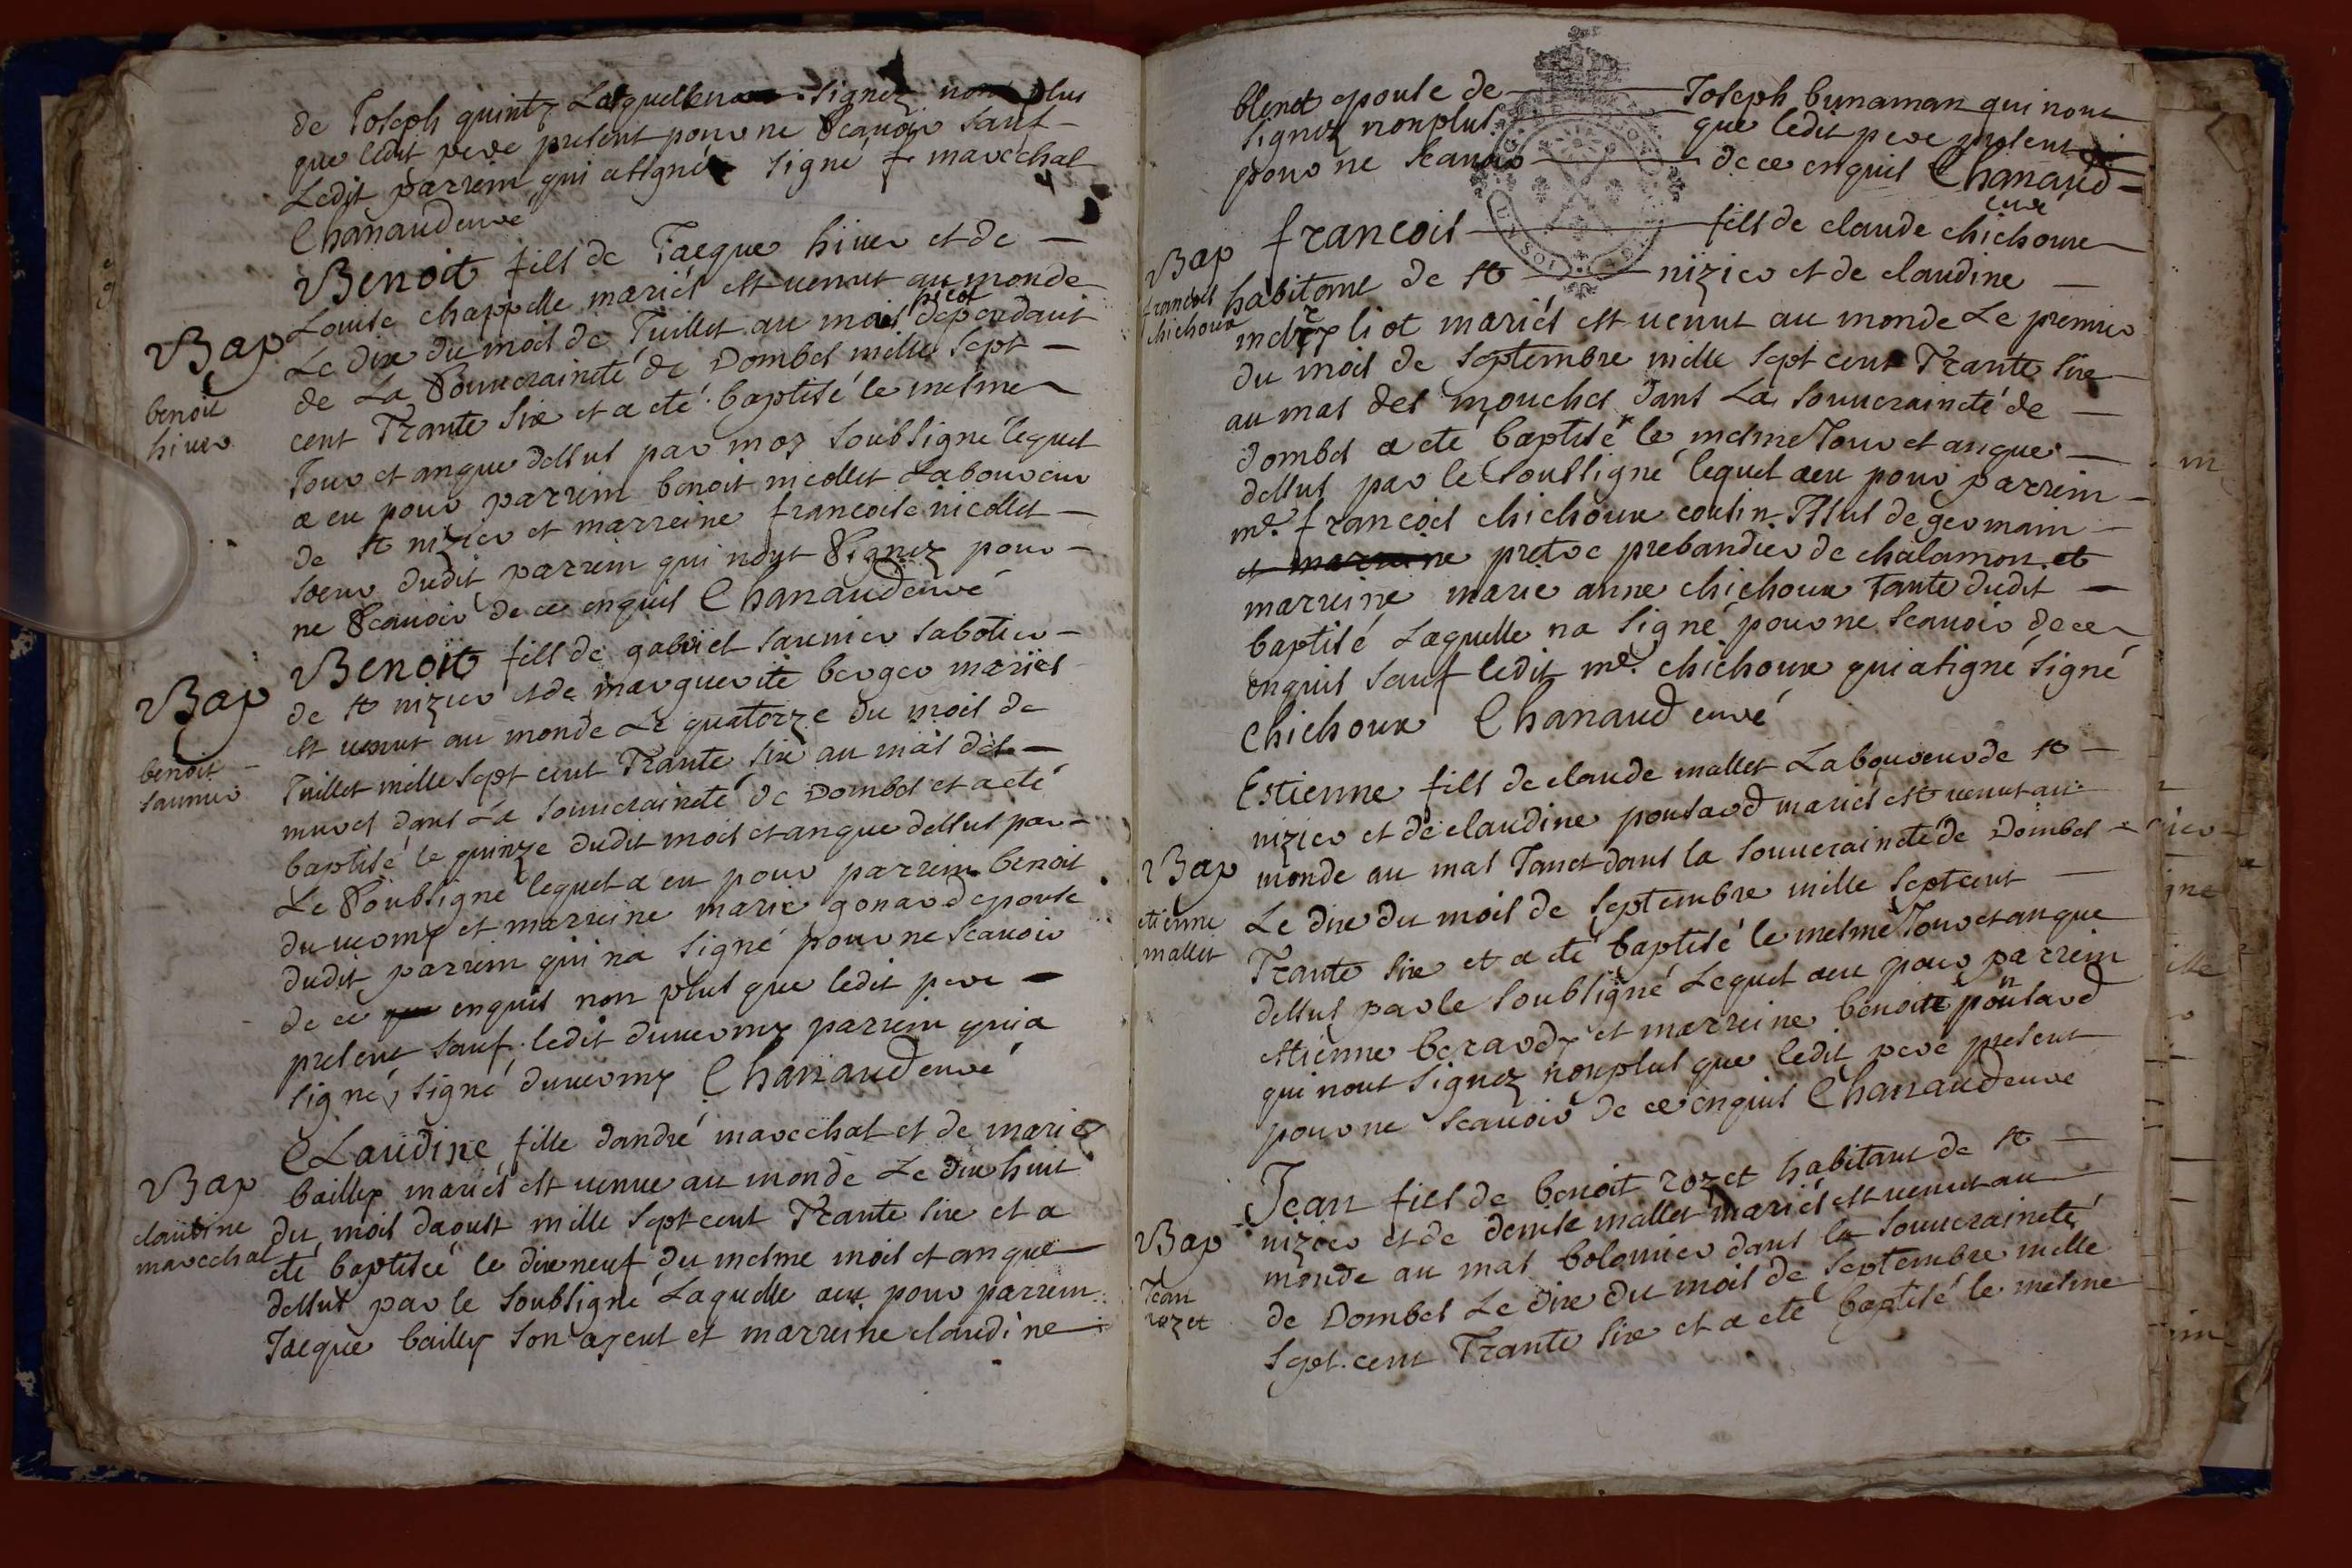 de Joseph quinty Laquelle na signez non plus
que ledit pere present pour ne Scauoir sauf
Ledit parrein qui a signé signé f marechal
Chanaud curé
Benoit fils de Jacque hiuer et de
Louise chappelle mariés est uenut au monde
Le dix du mois de Juillet au mas picot dependant
de La Souueraineté de Dombes mille sept
cent Trante six et a eté baptisé le mesme
Jour et anque dessus par moy soubsigné lequel
a eu pour parrein benoit nicollet Laboureur
de st nizier et marreine francoise nicollet
soeur dudit parrein qui nont Signez pour
ne Scauoir de ce enquis Chanaud curé
Bap
benoit
hiuer
Benoit fils de gabriel saunier sabotier
de st nizier et de marguerite berger mariés
est uenut au monde Le quatorze du mois de
Juillet mille sept cent Trante six au mas des
mures dans La souueraineté de Dombes et a eté
baptisé le quinze dudit mois et anque dessus par
Le Soubsigné lequel a eu pour parrein benoit
duuerny et marreine marie gonard epouse
dudit parrein qui na signé pour ne scauoir
de ce enquis non plus que ledit pere
present sauf ledit duuerny parrein qui a
signé, signé duuerny Chanaud curé
Bap
benoit
saunier
CLaudine fille dandré marechal et de marie
bailly mariés est uenue au monde Le dix huit
du mois daoust mille sept cent Trante six et a
eté baptisée le dix neuf du mesme mois et anque
dessus par le soubsigné Laquelle a eu pour parrein
Jacque bailly son ayeul et marreine claudine
Bap
claudine
marechal
blenet epouse de Joseph bunaman qui nont
signez non plus que ledit pere present
pour ne scauoir de ce enquis Chanaud
curé
francois fils de claude chichoux
habitant de st nizier et de claudine
liot mariés est uenut au monde Le premier
du mois de septembre mille sept cent Trante six
au mas des mouches dans La souueraineté de
dombes a eté baptisé le mesme Jour et anque
dessus par le soubsigné lequel a eu pour parrein
me. francois chichoux cousin Issus de germain
et marreine pretre prebandier de chalamon et
marreine marie anne chichoux tante dudit
baptisé Laquelle na signé pour ne scauoir de ce
enquis sauf ledit me. chichoux qui a signé signé
chichoux Chanaud curé
Bap
francois
chichoux
Estienne fils de claude mallet Laboureur de st
nizier et de claudine ponsard mariés est uenut au
monde au mas Janet dans la souueraineté de Dombes
Le dix du mois de septembre mille sept cent
Trante six et a eté baptisé le mesme Jour et anque
dessus par le soubsigné Lequel a eu pour parrein
etienne berardy et marreine benoite ponsard
qui nont signez non plus que ledit pere present
pour ne scauoir de ce enquis Chanaud curé
Bap
etienne
mallet
Jean fils de benoit rozet habitant de st
nizier et de denise mallet mariés est uenut au
monde au mas bolomier dans la souueraineté
de Dombes Le dix du mois de septembre mille
sept cent Trante six et a eté baptisé le mesme
Bap
Jean
rozet